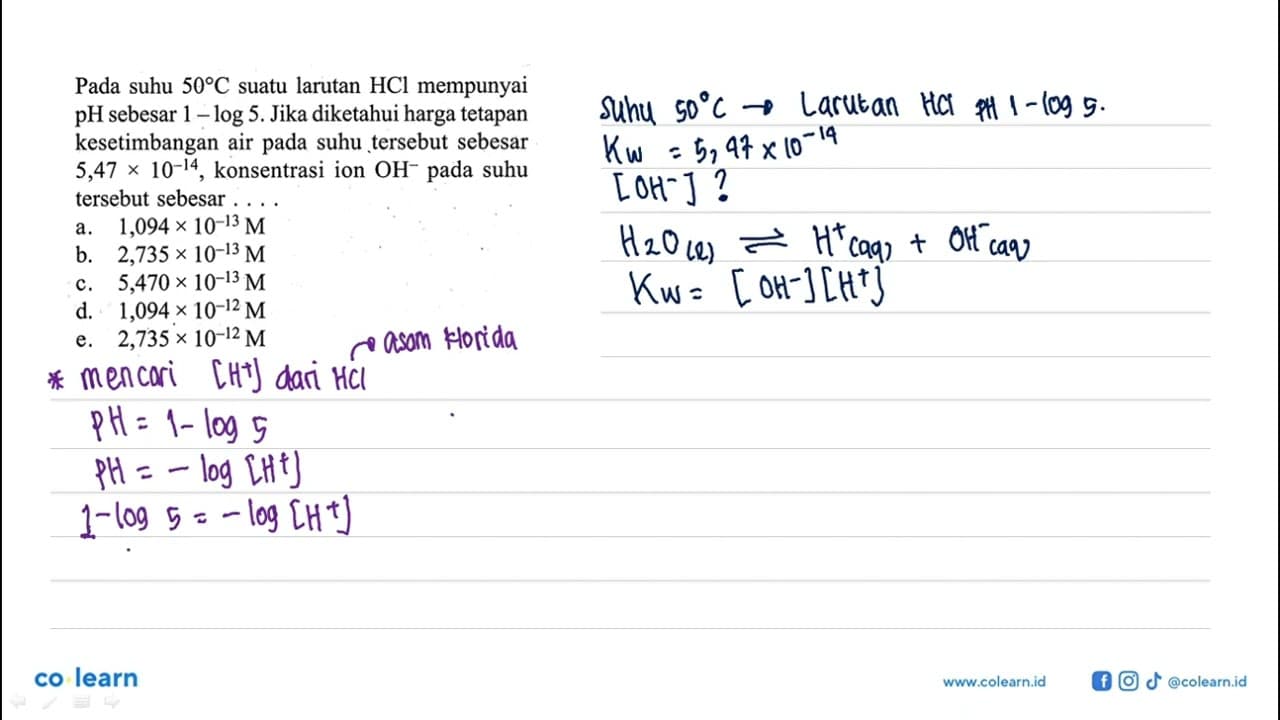 Pada suhu 50°C suatu larutan HCl mempunyai
pH sebesar 1 – log 5. Jika diketahui harga tetapan
kesetimbangan air pada suhu tersebut sebesar
5,47 × 10⁻¹⁴, konsentrasi ion OH⁻ pada suhu
tersebut sebesar . . . .
a. 1,094 × 10⁻¹³ M
b. 2,735 × 10⁻¹³ M
c. 5,470 × 10⁻¹³ M
d. 1,094 × 10⁻¹² M
e. 2,735 × 10⁻¹² M
→ asam klorida
* mencari [H⁺] dari HCl
PH = 1 - log 5
PH = - log [H⁺]
1 - log 5 = - log [H⁺]
Suhu 50°C → Larutan HCl PH 1 - log 5.
Kw = 5,47 × 10⁻¹⁴
[OH⁻] ?
H2O (l) ⇌ H⁺ (aq) + OH⁻ (aq)
Kw = [OH⁻] [H⁺]
co learn
www.colearn.id
@colearn.id